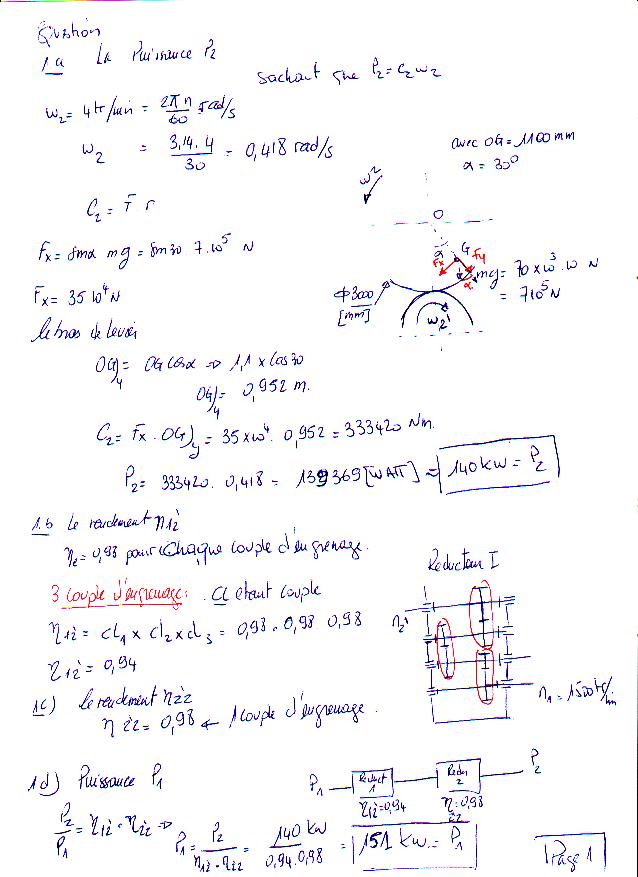 Question
1a La Puissance P2
Sachant que P2 = C2 ω2
ω2 = 4tr/min = 2πn/60 rad/s
ω2 = 3,14.4/30 = 0,418 rad/s
avec OG = 1100 mm
α = 30°
ω2
O
C2 = F r
α G
Fx Fy
Fx = sinα mg = sin30 7.10^5 N
α mg = 70 x 10^3 . 10 N
= 7 10^5 N
Fx = 35 10^4 N
Φ3000
[mm]
ω2'
le bras de levier
OG)y = OG cosα => 1,1 x cos30
OG)y = 0,952 m.
C2 = Fx . OG)y = 35 x 10^4 . 0,952 = 333420 Nm.
P2 = 333420 . 0,418 = 139369 [WATT] = 140 kW = P2
1.b Le rendement η12'
ηe = 0,98 pour chaque couple d'engrenage.
Reducteur I
3 couple d'engrenage: cl étant couple
η12' = cl1 x cl2 x cl3 = 0,98 . 0,98 0,98
n2'
η12' = 0,94
n1 = 1500 tr/min
1c) le rendement η2'2
η2'2 = 0,98 ← 1 couple d'engrenage.
1d) Puissance P1
P1 Reduct 1 Reduc 2 P2
η12' = 0,94 η2'2 = 0,98
P2/P1 = η12' . η2'2 => P1 = P2/η12' . η2'2 = 140 kW/0,94.0,98 = 151 kW = P1
Page 1